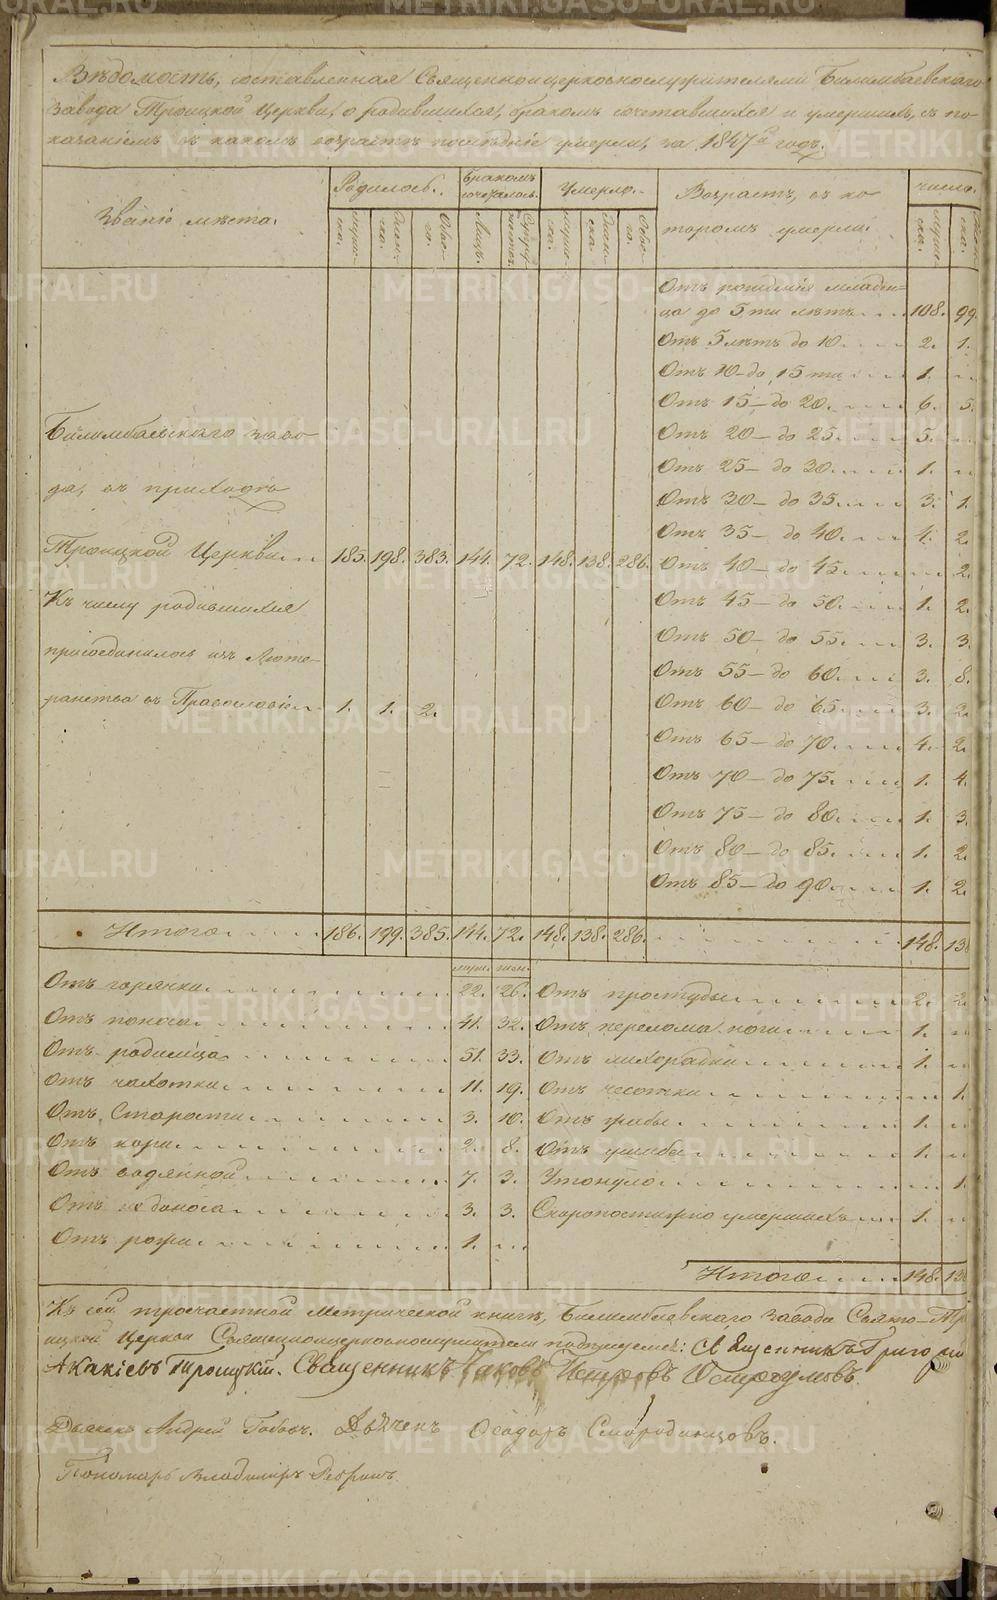 Вѣдомость, составленная Священноцерковнослужителями Билимбаевскаго
завода Троицкой Церкви, о родившихся, бракомъ сочетавшихся и умершихъ, съ по-
казаніемъ въ какомъ возрастѣ послѣдніе умерли, за 1847й годъ.
Званіе мѣста. Родилось. Бракомъ сочеталось. Умерло. Возрастъ, въ ко- Число.
муже- ска. женс- ка. Обое- го. Лицъ. муже- ска. женс- ка. Обое- го. торомъ умерли. муже- ска.
Отъ рожденія младен-
ца до 5ти лѣтъ 108. 99.
Отъ 5 лѣтъ до 10. 2. 1.
Отъ 10 до 15ти 1. „
Отъ 15 – до 20. 6. 5.
Билимбаевскаго заво- Отъ 20 – до 25. 5. „
Отъ 25 – до 30. 1. „
да, въ приходѣ Отъ 30 – до 35. 3. 1.
Отъ 35 – до 40. 4. 2.
Троицкой Церкви 185. 198. 383. 144. 72. 148. 138. 286. Отъ 40 – до 45. „ 2.
Къ числу родившихся Отъ 45 – до 50. 1. 2.
присоединилось изъ Люте- Отъ 50 – до 55. 3. 3.
Отъ 55 – до 60. 3. 8.
ранства въ Православіе 1. 1. 2. Отъ 60 – до 65. 3. 2.
Отъ 65 – до 70. 4. 2.
Отъ 70 – до 75. 1. 4.
Отъ 75 – до 80. 1. 3.
Отъ 80 – до 85. 1. 2.
Отъ 85 – до 90. 1. 2.
Итого 186. 199. 385. 144. 72. 148. 138. 286. 148. 138
Отъ горячки 22. 26. Отъ простуды 2. 2.
Отъ поноса 41. 32. Отъ перелома ноги 1. „
Отъ родимца 51. 33. Отъ лихорадки 1. „
Отъ чахотки 11. 19. Отъ чесотки „ 1.
Отъ Старости 3. 10. Отъ грыбы 1. „
Отъ кори 2. 8. Отъ ушиба 1. „
Отъ водянной 7. 3. Утонуло „ 1.
Отъ 3. 3. Скоропостижно умершихъ 1. „
Отъ рожи 1. „
Итого 148. 138
Къ сей троечастной Метрической книгѣ, Билимбаевскаго завода Свято-Тро
ицкой Церкви Священноцерковнослужители подписуемся: Священникъ Григорій
Акакіевъ Троицкій. Священникъ Іаковъ Петровъ Остроумовъ.
Дьяконъ Андрей Дьячекъ Ѳеодоръ Смородинцовъ.
Пономарь Владиміръ
METRIKI.GASO-URAL.RU